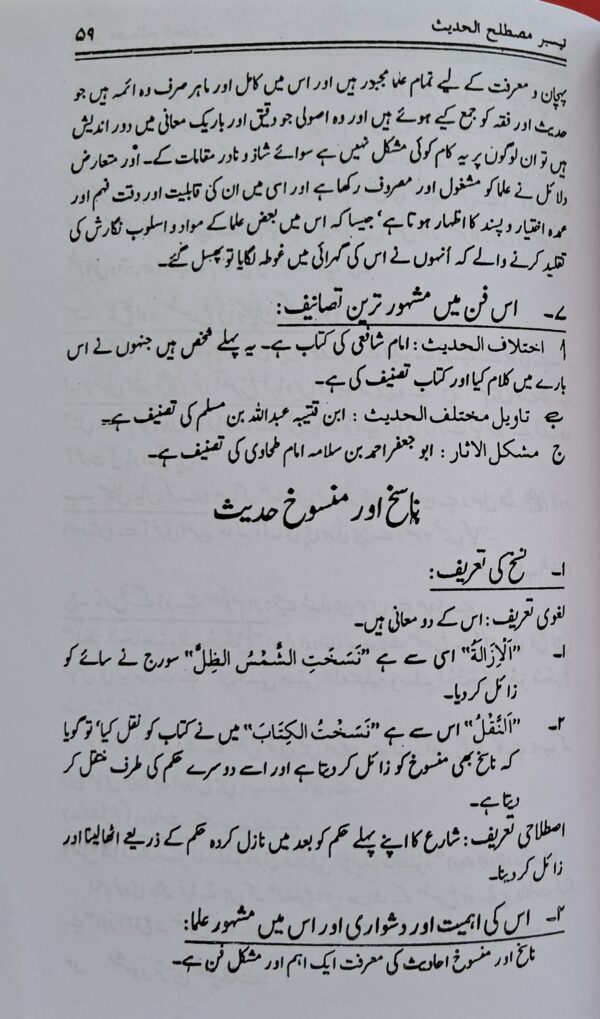 تیسیر مصطلح الحدیث ۵۹
پہچان و معرفت کے لیے تمام علما مجبور ہیں اور اس میں کامل اور ماہر صرف وہ ائمہ ہیں جو
حدیث اور فقہ کو جمع کیے ہوئے ہیں اور وہ اصولی جو دقیق اور باریک معانی میں دور اندیش
ہیں تو ان لوگوں پر یہ کام کوئی مشکل نہیں ہے سوائے شاذ و نادر مقامات کے۔ اور متعارض
دلائل نے علما کو مشغول اور مصروف رکھا ہے اور اسی میں ان کی قابلیت اور دقت فہم اور
عمدہ اختیار و پسند کا اظہار ہوتا ہے، جیسا کہ اس میں بعض علما کے مواد و اسلوب نگارش کی
تقلید کرنے والے کہ انہوں نے اس کی گہرائی میں غوطہ لگایا تو پھسل گئے۔
۷۔ اس فن میں مشہور ترین تصانیف:
اختلاف الحدیث: امام شافعی کی کتاب ہے۔ یہ پہلے شخص ہیں جنہوں نے اس
بارے میں کلام کیا اور کتاب تصنیف کی ہے۔
ب تاویل مختلف الحدیث: ابن قتیبہ عبداللہ بن مسلم کی تصنیف ہے۔
ج مشکل الاثار: ابو جعفر احمد بن سلامہ امام طحاوی کی تصنیف ہے۔
ناسخ اور منسوخ حدیث
۱۔ نسخ کی تعریف:
لغوی تعریف: اس کے دو معانی ہیں۔
۱۔ ”اَلْاِزَالَةُ“ اسی سے ہے ”نَسَخَتِ الشَّمْسُ الظِلَّ“ سورج نے سائے کو
زائل کر دیا۔
۲۔ ”اَلنَّقْلُ“ اس سے ہے ”نَسَخْتُ الْكِتَابَ“ میں نے کتاب کو نقل کیا، تو گویا
کہ ناسخ بھی منسوخ کو زائل کر دیتا ہے اور اسے دوسرے حکم کی طرف منتقل کر
دیتا ہے۔
اصطلاحی تعریف: شارع کا اپنے پہلے حکم کو بعد میں نازل کردہ حکم کے ذریعے اٹھا لینا اور
زائل کر دینا۔
۲۔ اس کی اہمیت اور دشواری اور اس میں مشہور علما:
ناسخ اور منسوخ احادیث کی معرفت ایک اہم اور مشکل فن ہے۔